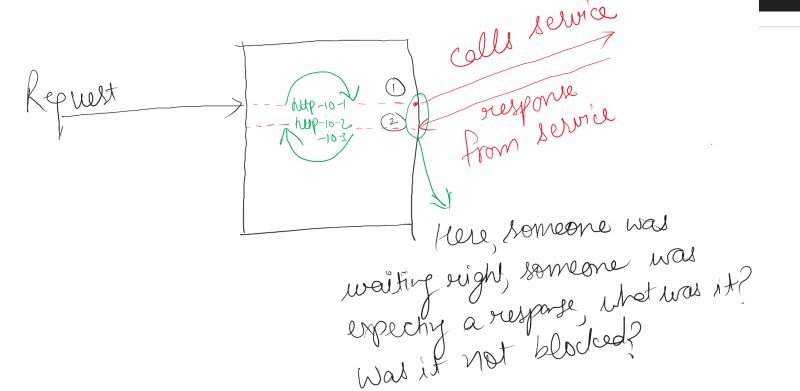 calls service
①
Request
http-10-1
http-10-2
-10-3
②
response
from service
Here, someone was
waiting right, someone was
expectiy a response, what was it?
Was it not blocked?